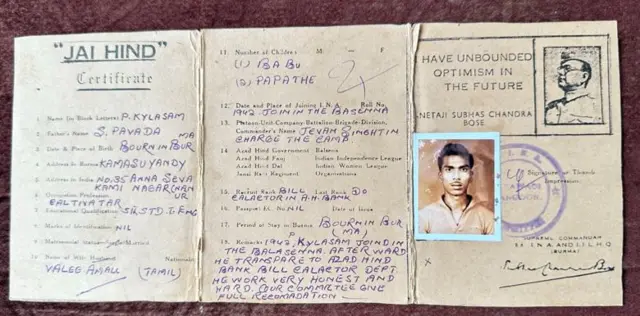 "JAI HIND"
Certificate
1. Name (in Block Letters) P. KYLASAM
2. Father's Name S. PAVADA
3. Date & Place of Birth BOURN IN BUR MA
4. Address in Burma KAMASUYANDY
5. Address in India NO. 35 ANNA SEVA
KAMI NAGAR (NAN UR
6. Occupation Profession
EALTNATAR
7. Educational Qualification 5th STD.
8. Marks of Identification NIL
9. Matrimonial Status Married
10. Name of Wife Husband Nationality
VALEE AMALL (TAMIL)
11. Number of Children M: — F
(1) BABU
(2) PAPATHE
2
12. Date and Place of Joining I.N.A. Roll No.
1942. JOIN IN THE BASEMNA
13. Platoon-Unit-Company-Battalion-Brigade-Division.
Commander's Name JEVAN SINGHTIN
CHARGE THE CAMB
14. Azad Hind Government Balsena
Azad Hind Fauj Indian Independence League
Azad Hind Dal Indian Women League
Jansi Rani Regiment Organisations
15. Recruit Rank BILL Last Rank DO
CALACTOR IN A.H. BANK
16. NIL Date of Issue
17. Period of Stay in Burma BOURN IN BUR
(MA)
18. Remarks 1942, P KYLASAM JOIND IN
THE BALASENNA. AFTER WARD
HE TRANSPARE TO AZAD HIND
BANK BILL CALACTOR DEPT.
HE WORK VERY HONEST AND
HARD. OUR COMMITEE GIVE
FULL RECOMADATION
HAVE UNBOUNDED
OPTIMISM IN
THE FUTURE
NETAJI SUBHAS CHANDRA
BOSE
Signature or Thumb
Impression
SUPREME COMMANDER
I.N.A. AND I.I.L. H.Q
(BURMA)
x